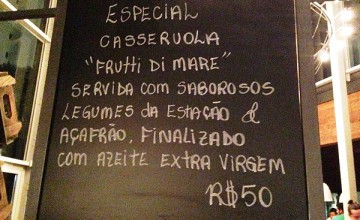 ESPECIAL
CASSERUOLA
"FRUTTI DI MARE"
SERVIDA COM SABOROSOS
LEGUMES DA ESTAÇÃO &
AÇAFRÃO, FINALIZADO
COM AZEITE EXTRA VIRGEM
R$50